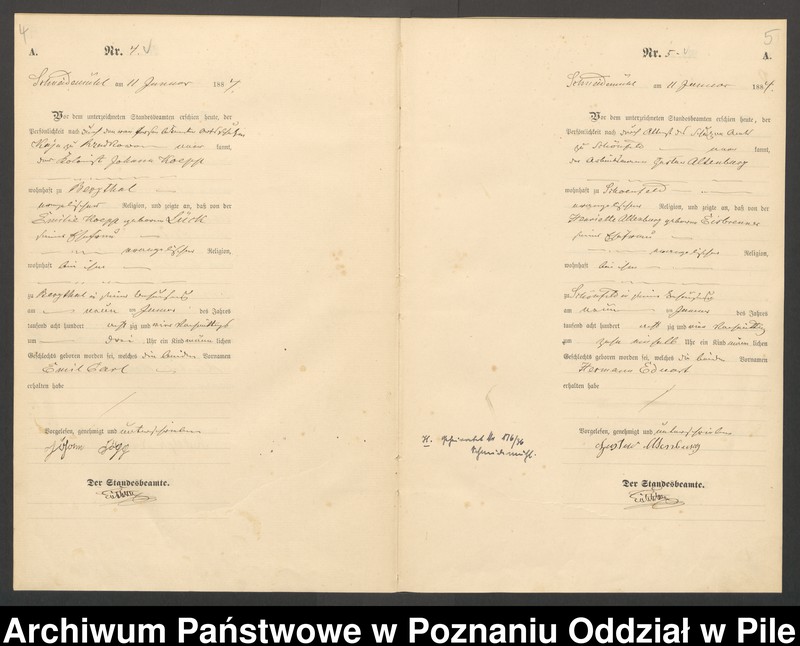 4
A.
Nr. 4.
Schneidemühl am 11 Januar 1884.
Vor dem unterzeichneten Standesbeamten erschien heute, der
Persönlichkeit nach durch den von
zu kannt,
der Kolonist Johann Koepp
wohnhaft zu Bergthal
evangelischer Religion, und zeigte an, daß von der
Emilie Koepp geborene Lück
seiner Ehefrau
evangelischer Religion,
wohnhaft bei ihm
zu Bergthal in seiner Behausung
am neun ten Januar des Jahres
tausend acht hundert acht zig und vier Vormittags
um drei Uhr ein Kind männlichen
Geschlechts geboren worden sei, welches die beiden Vornamen
Emil Carl
erhalten habe
Vorgelesen, genehmigt und unterschrieben
Johann Köpp
Der Standesbeamte.
5
A.
Nr. 5
Schneidemühl am 11 Januar 1884.
Vor dem unterzeichneten Standesbeamten erschien heute, der
Persönlichkeit nach durch Attest des Schulzen Amts
zu Schönfeld kannt,
der Arbeitsmann Gustav Altenburg
wohnhaft zu Schoenfeld
evangelischer Religion, und zeigte an, daß von der
Henriette Altenburg geborene Eisbrenner
seiner Ehefrau
evangelischer Religion,
wohnhaft bei ihm
zu Schönfeld in seiner Behausung
am neun ten Januar des Jahres
tausend acht hundert acht zig und vier Vormittags
um zehn einhalb Uhr ein Kind männlichen
Geschlechts geboren worden sei, welches die beiden Vornamen
Hermann Eduard
erhalten habe
Vorgelesen, genehmigt und unterschrieben
Gustav Altenburg
Der Standesbeamte.
H. Heiratet No 176/36
Schneidemühl.
Archiwum Państwowe w Poznaniu Oddział w Pile